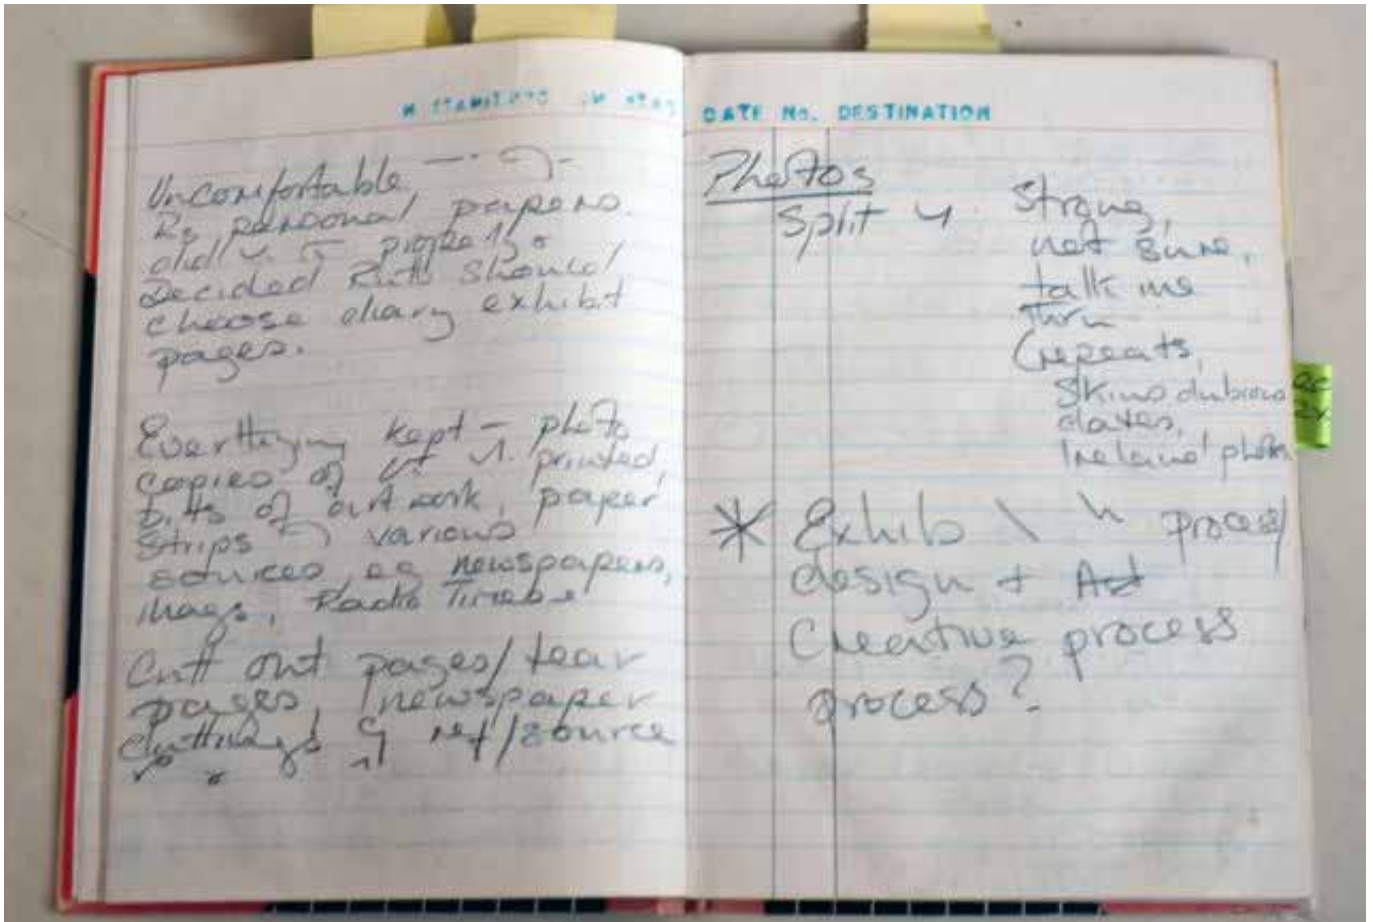 DATE No. DESTINATION
Uncomfortable
Re personal papers.
did
Decided Ruth should
choose diary exhibit
pages.
Everything kept – photo
copies of printed,
bits of artwork, paper
strips various
sources, eg newspapers,
mags, Radio Times
Cutt out pages/tear
pages, newspaper
cuttings ref/source
Photos
Split
Strong,
not sure,
talk me
Thru
(repeats,
Skins dubious
dates,
Ireland photos
* Exhib process/
design + Art
Creative process
process?